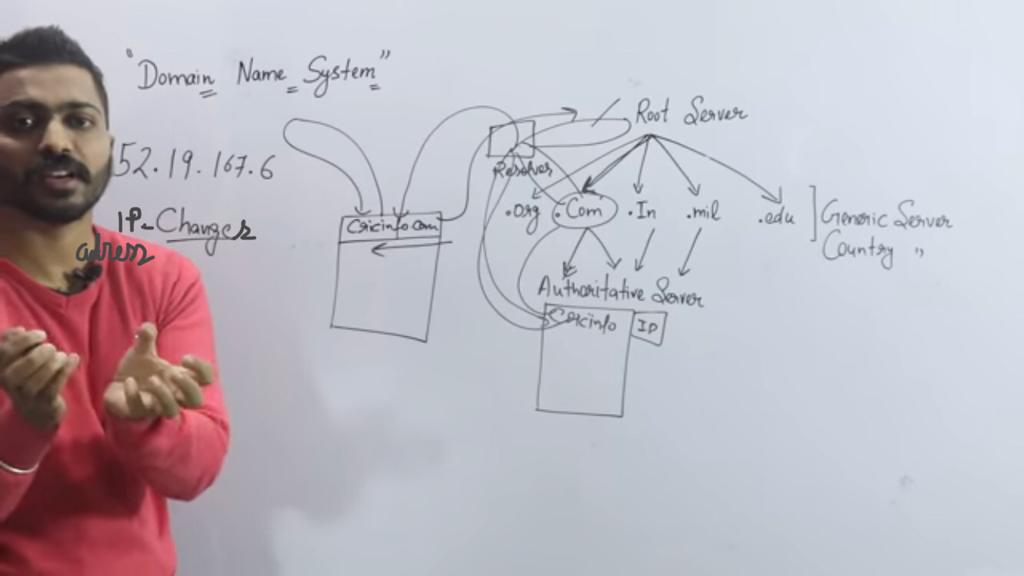 "Domain Name System"
52.19.167.6
IP-Changes
adress
Cricinfo com
Resolver
Root Server
.org .Com .In .mil .edu
Generic Server
Country "
Authoritative Server
Cricinfo IP